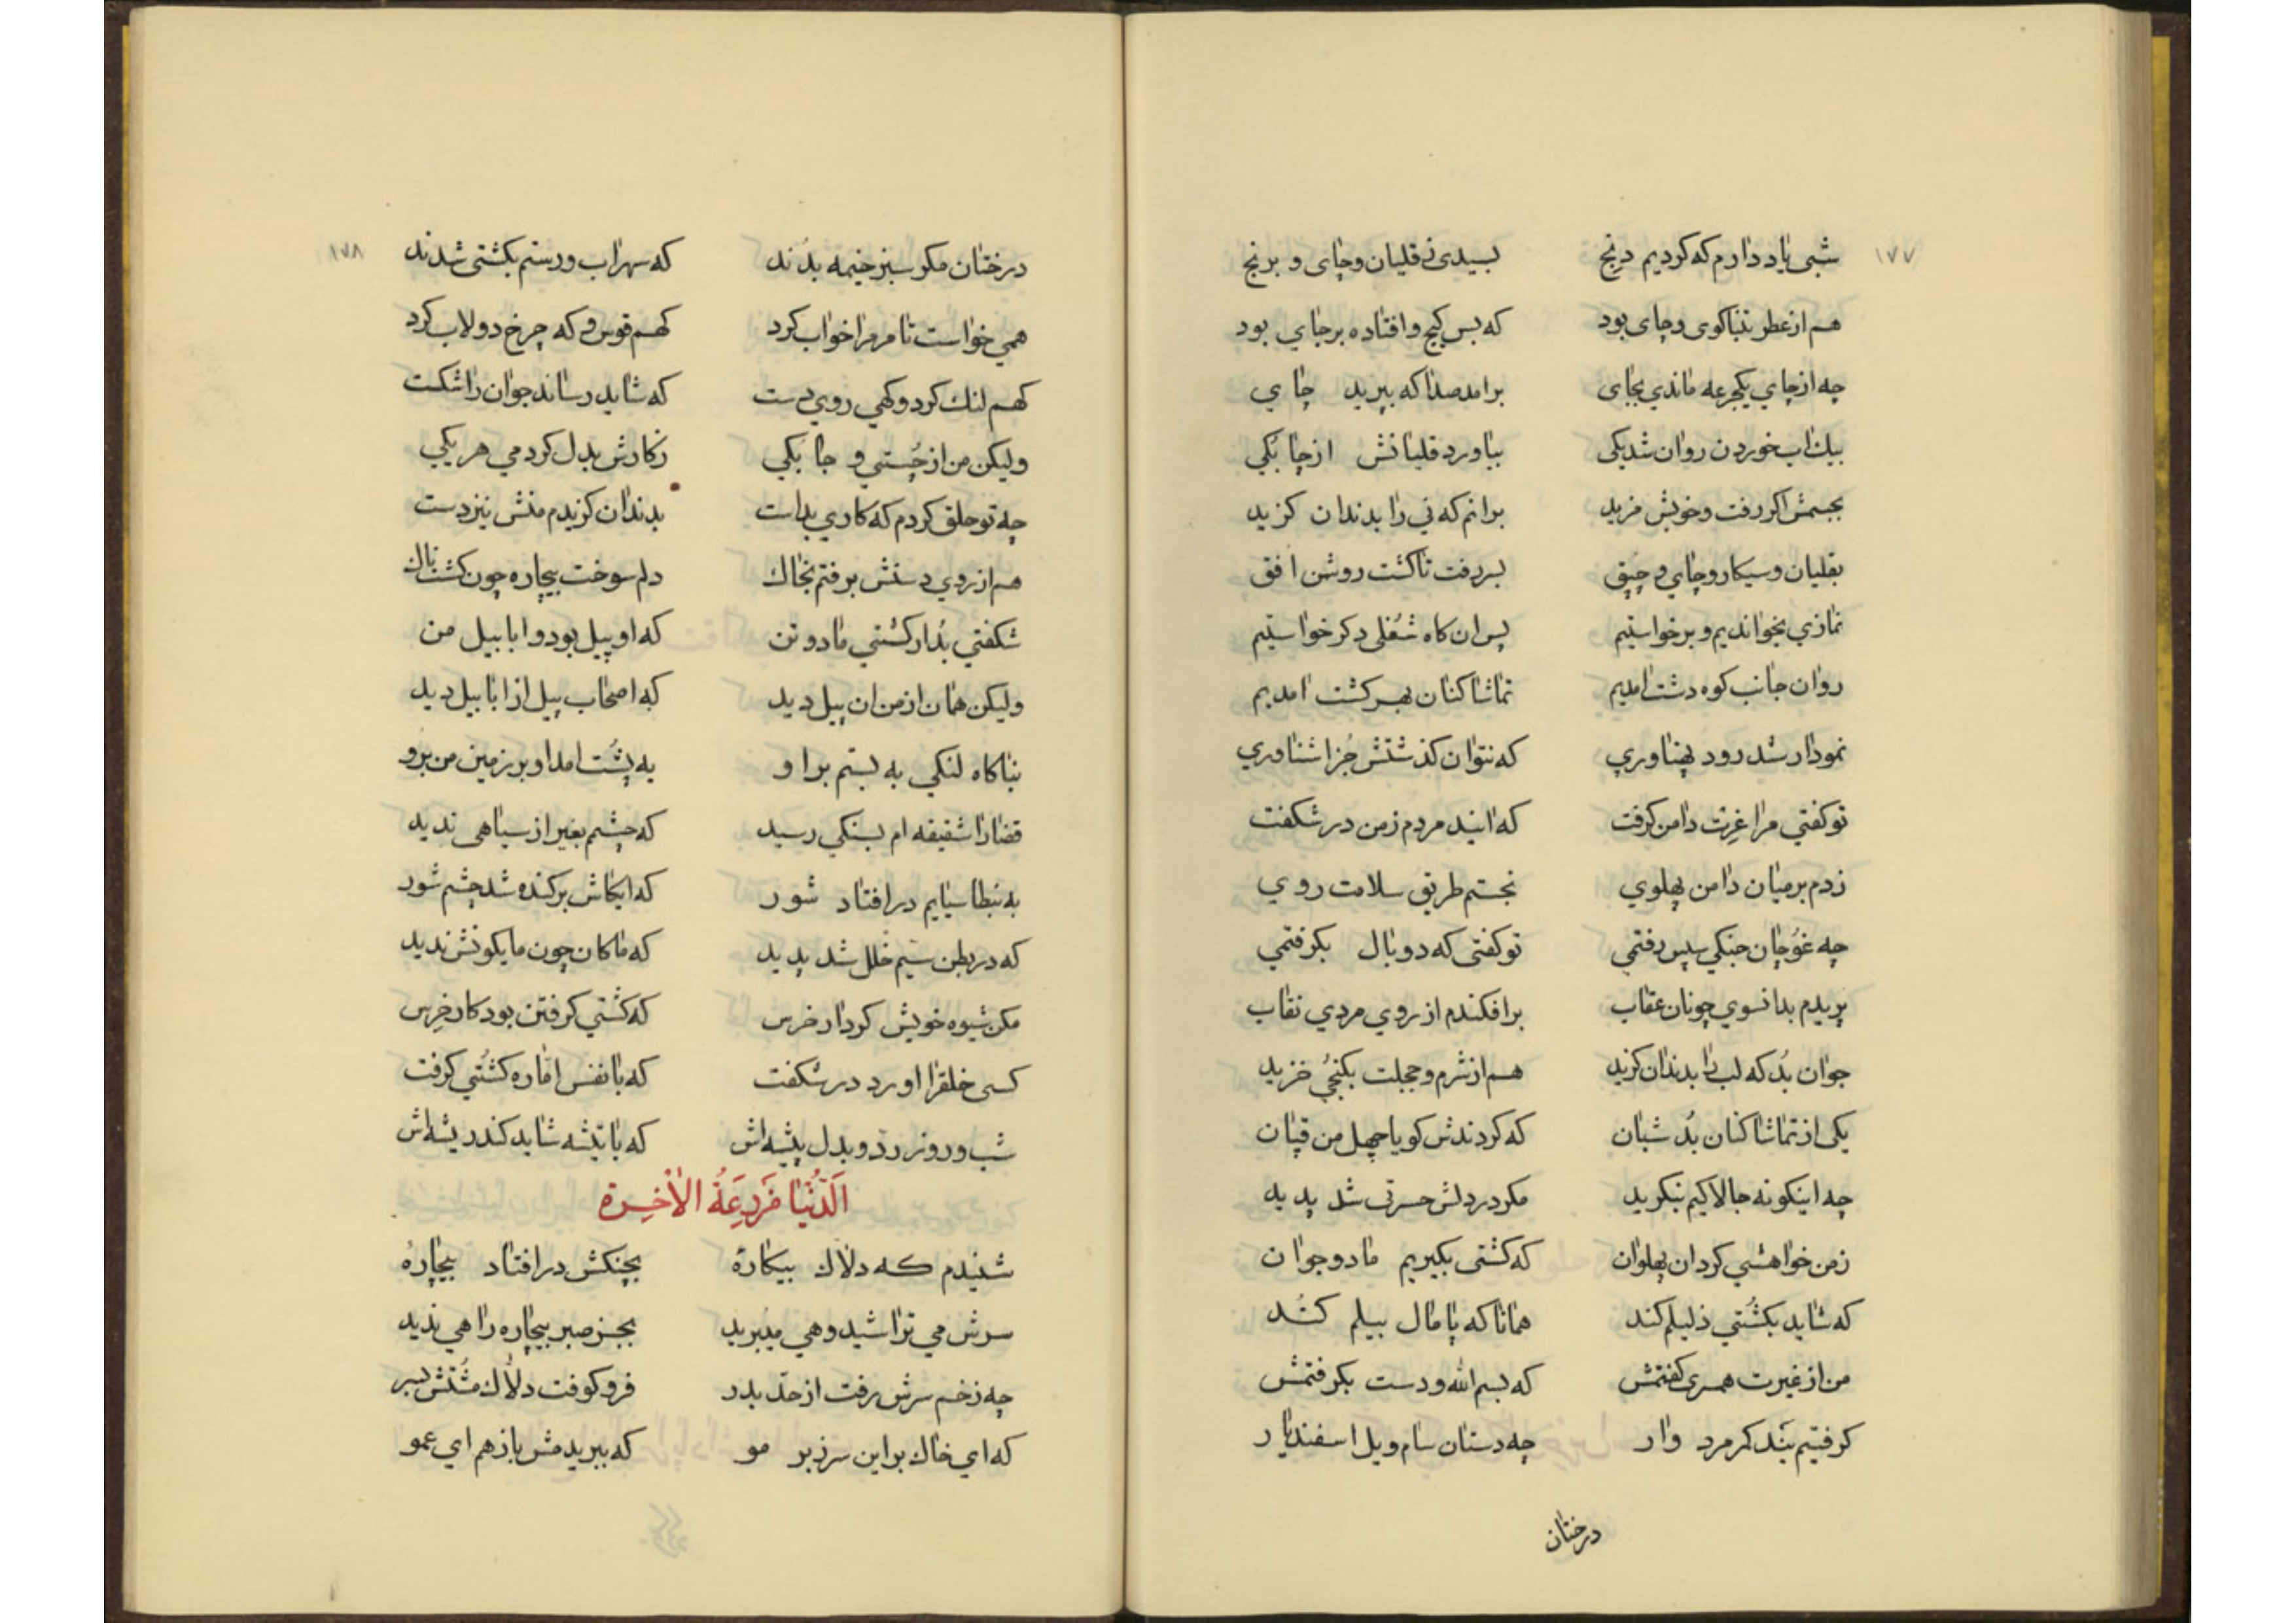 ۱۷۷
شبی یاد دارم که کردیم درنج بسیدی نی قلیان و چای و برنج
هم از عطر تنباکوی و چای بود که بس گیج و افتاده بر جای بود
چه از چای یکجرعه ماندی بجای برامد صدا که ببرید چای
بیک اب خوردن روان شد یکی بیاورد قلیانش از چابکی
بجسمش اکر رفت و خویش مزید برانم که نی را بدندان کزید
بقلیان و سیکار و چای و چپق بسر رفت تا کشت روشن افق
نمازی بخواندیم و برخواستیم پس ان کاه شغلی دکر خواستیم
روان جانب کوه دشت امدیم تماشا کنان بهر کشت امدیم
نمودار شد رود پهناوری که نتوان کذشتش جز اشناوری
تو کفتی مرا غیرت دامن کرفت که ایند مردم زمن در شکفت
زدم بر میان دامن پهلوی نجستم طریق سلامت روی
چه غوچان جنکی سپس رفتمی تو کفتی که دو بال بکرفتمی
پریدم بدانسوی چونان عقاب برافکندم از روی مردی نقاب
جوان بد که لب را بدندان کزید هم از شرم و خجلت بکنجی خزید
یکی از تماشا کنان بد شبان که کردندش کویا چهل من قپان
چه اینکونه چالاکیم بنکرید مکر در دلش حسرتی شد پدید
زمن خواهشی کرد ان پهلوان که کشتی بکیریم ما دو جوان
که شاید بکشتی ذلیلم کند همانا که پامال بیلم کند
من از غیرت همسری کفتمش که بسم الله و دست بکرفتمش
کرفتیم بند کمر مرد وار چه دستان سام ویل اسفندیار
درختان
۱۷۸
درختان مکر سبز خیمه بدند که سهراب و رستم بکشتی شدند
همی خواست تا مر مرا خواب کرد کهم قوس و که چرخ دولاب کرد
کهم لنک کرد و کهی روی دست که شاید رساند جوان را شکست
ولیکن من از چستی و چابکی زکارش بدل کردمی هر یکی
چه تو حلق کردم که کاری بداست بدندان کزیدم منش نیز دست
هم از روی دستش برفتم بخاک دلم سوخت بیچاره چون کشت ناک
شکفتی بدار کشتی ما دو تن که او پیل بود و ابابیل من
ولیکن همان از من ان پیل دید که اصحاب پیل از ابابیل دید
بناکاه لنکی به بستم بر او به پشت امد او بر زمین من برو
قضارا شقیقه ام بسنکی رسید که چشمم بغیر از سیاهی ندید
به نبطاسیایم در افتاد شور که ایکاش برکنده شد چشم شور
که در بطن سیم خلل شد پدید که ماکان چون مایکونش ندید
مکن شیوه خویش کردار خرس که کشتی کرفتن بود کار خرس
کسی خلقرا اورد در شکفت که با نفس اماره کشتی کرفت
شب و روز رد و بدل پیشه اش که با تیشه شاید کند ریشه اش
اَلدُّنْیَا مَزرِعَةُ الاٰخِرة
شنیدم که دلاک بیکارهٔ بچنکش در افتاد بیچارهٔ
سرش می تراشید و هی میبرید بجز صبر بیچاره راهی ندید
چه زخم سرش رفت از حد بدر فرو کوفت دلاک مشتش بسر
که ای خاک بر این سر زیر مو که ببریدمش باز هم ای عمو